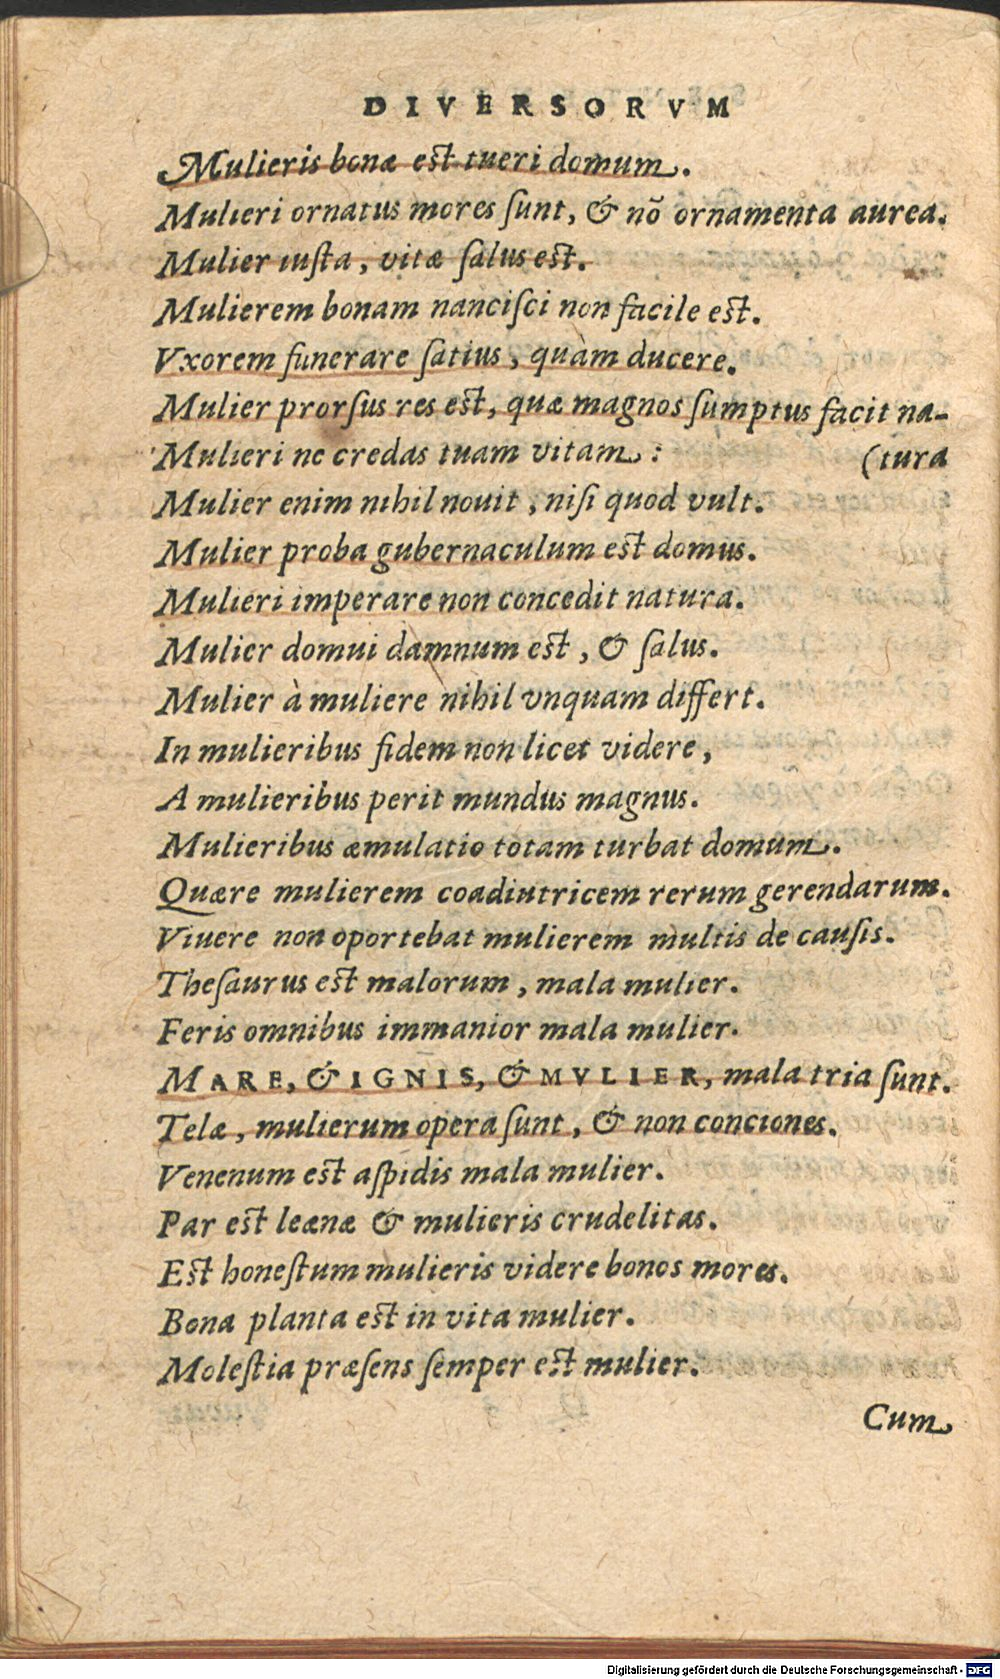 DIVERSORVM
Mulieris bonæ est tueri domum.
Mulieri ornatus mores ſunt, & nō ornamenta aurea.
Mulier iuſta, vitæ ſalus est.
Mulierem bonam nanciſci non facile est.
Vxorem funerare ſatius, quàm ducere.
Mulier prorſus res est, quæ magnos ſumptus facit na-
Mulieri ne credas tuam vitam: (tura
Mulier enim nihil nouit, niſi quod vult.
Mulier proba gubernaculum est domus.
Mulieri imperare non concedit natura.
Mulier domui damnum est, & ſalus.
Mulier à muliere nihil vnquam differt.
In mulieribus fidem non licet videre,
A mulieribus perit mundus magnus.
Mulieribus æmulatio totam turbat domum.
Quære mulierem coadiutricem rerum gerendarum.
Viuere non oportebat mulierem multis de cauſis.
Theſaurus est malorum, mala mulier.
Feris omnibus immanior mala mulier.
MARE, & IGNIS, & MVLIER, mala tria ſunt.
Telæ, mulierum opera ſunt, & non conciones.
Venenum est aſpidis mala mulier.
Par est leænæ & mulieris crudelitas.
Est honeſtum mulieris videre bonos mores.
Bona planta est in vita mulier.
Moleſtia præſens ſemper est mulier.
Cum
Digitalisierung gefördert durch die Deutsche Forschungsgemeinschaft - DFG